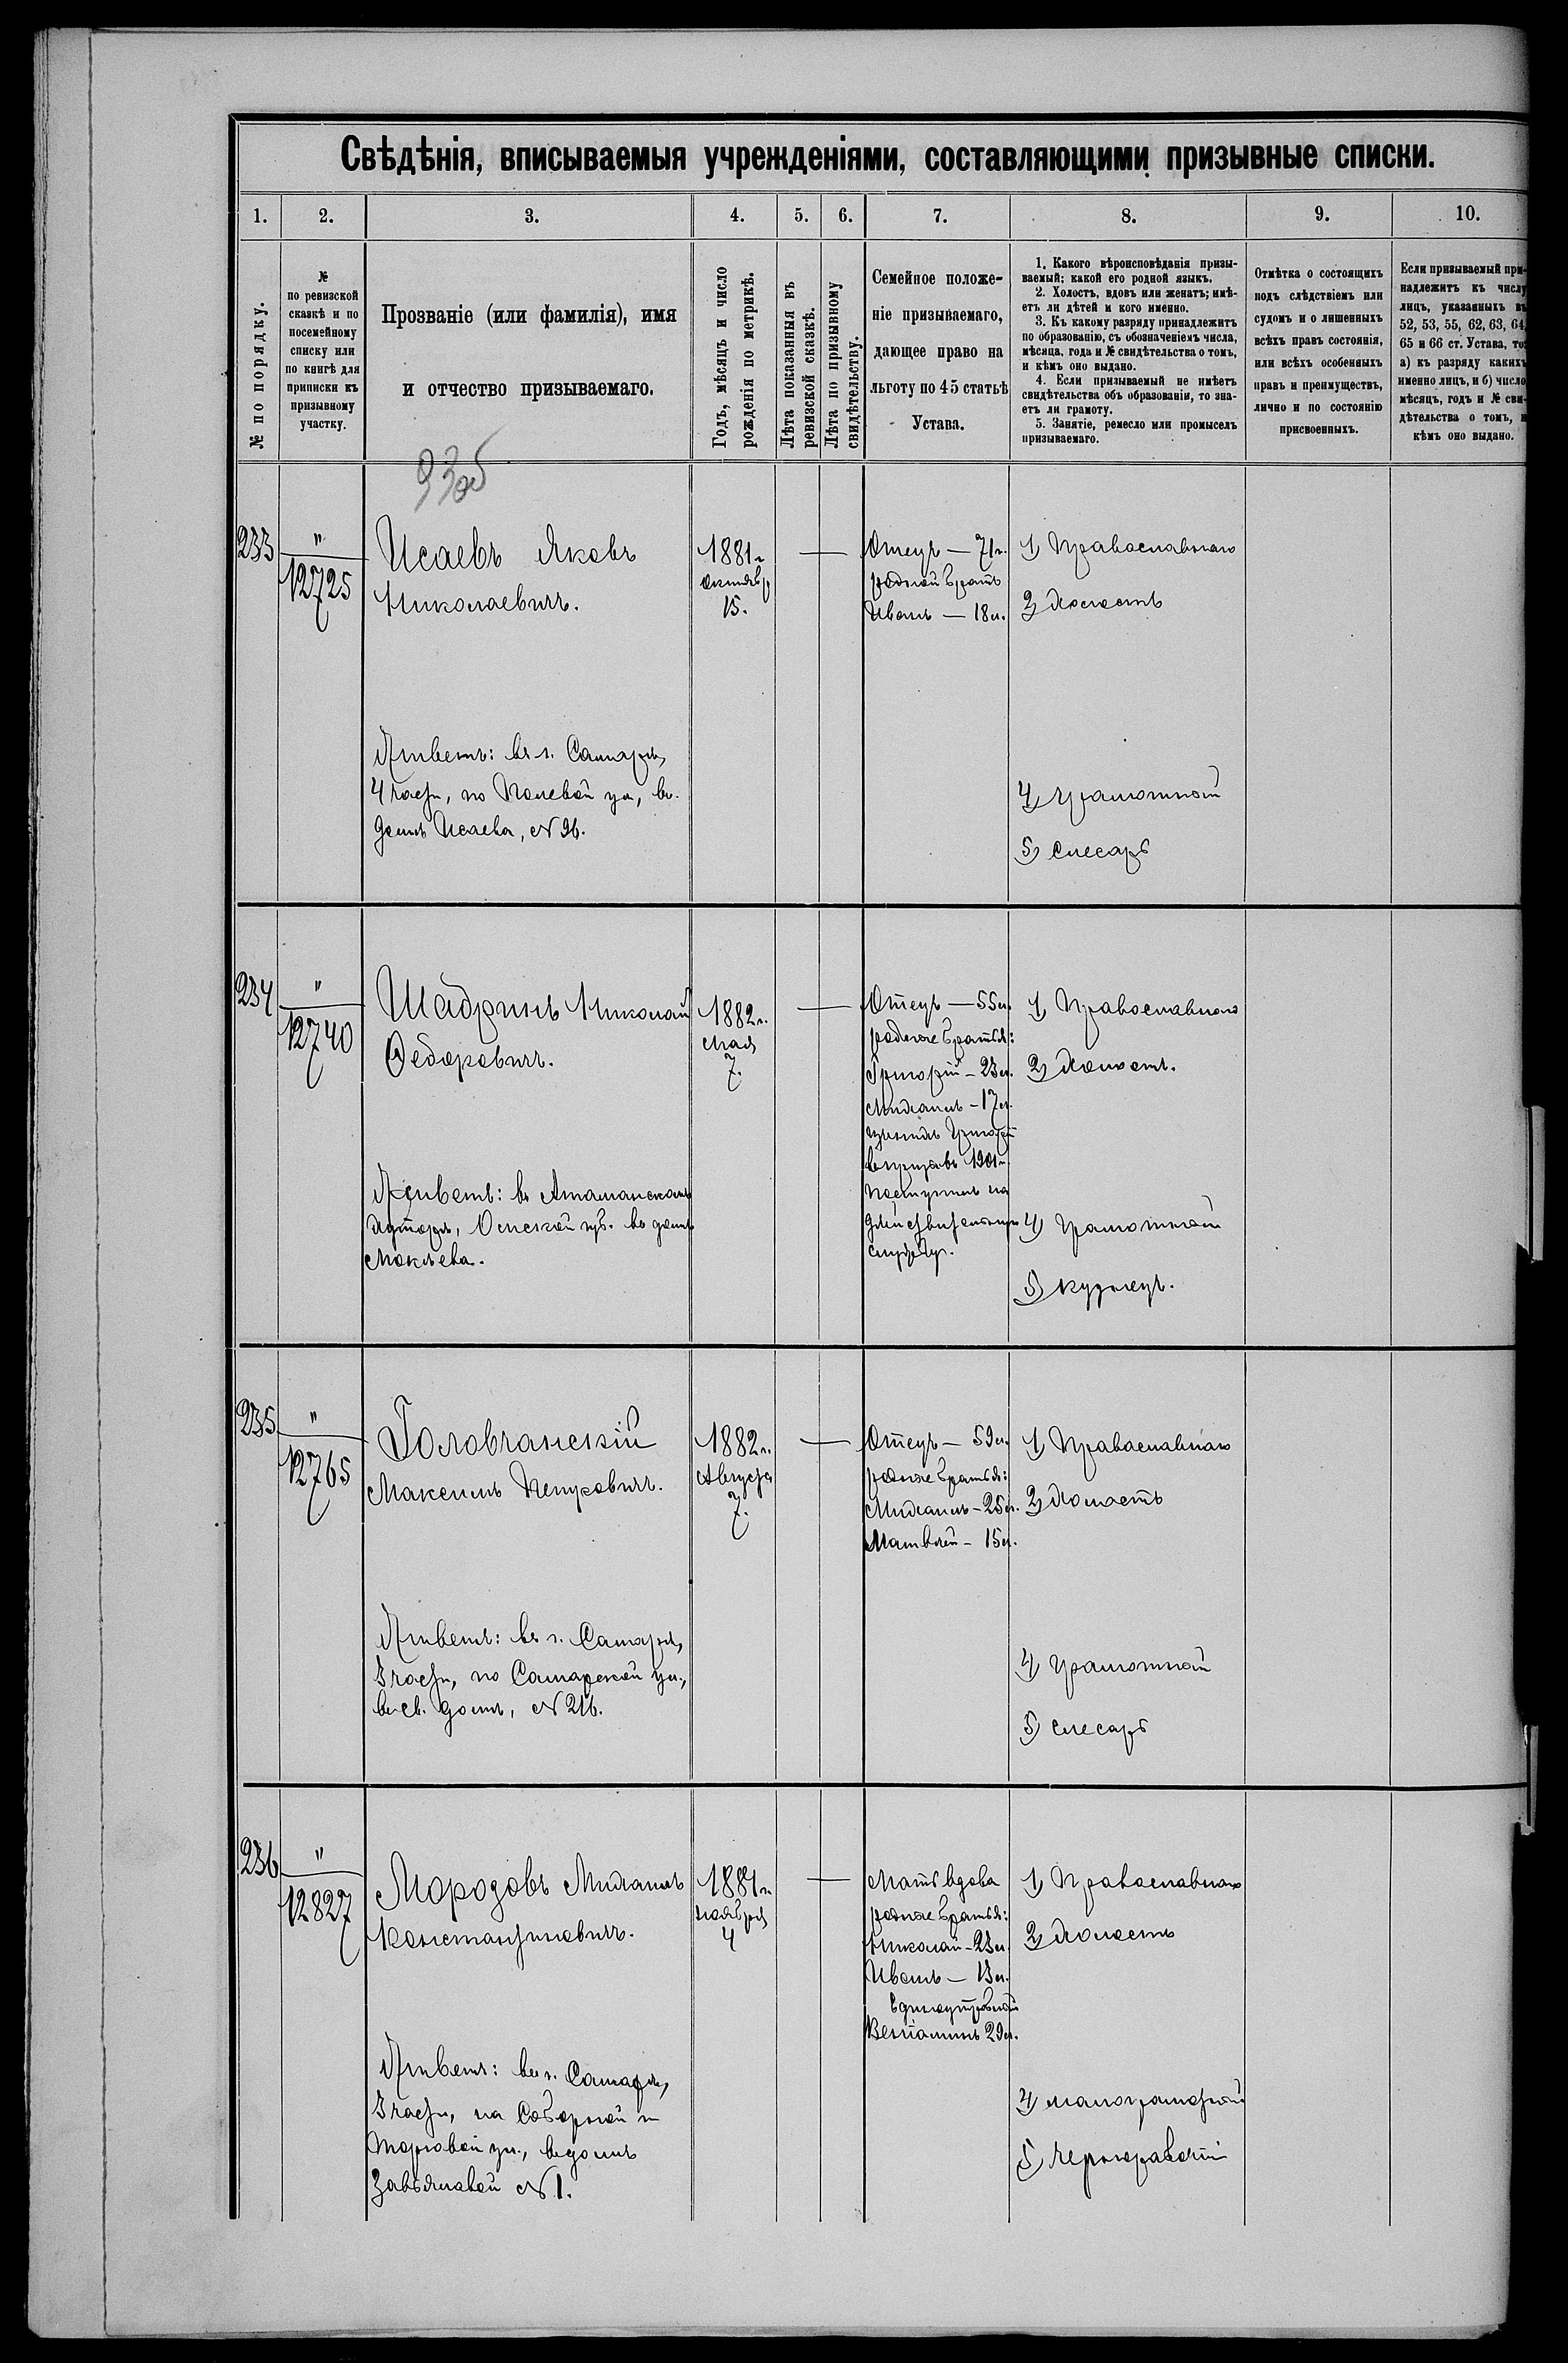 Свѣдѣнія, вписываемыя учрежденіями, составляющими призывные списки.
1. 2. 3. 4. 5. 6. 7. 8. 9. 10.
№ по порядку.
№
по ревизской
сказкѣ и по
посемейному
списку или
по книгѣ для
приписки къ
призывному
участку.
Прозваніе (или фамилія), имя
и отчество призываемаго.
Годъ, мѣсяцъ и число
рожденія по метрикѣ.
Лѣта показанныя въ
ревизской сказкѣ.
Лѣта по призывному
свидѣтельству.
Семейное положе-
ніе призываемаго,
дающее право на
льготу по 45 статьѣ
Устава.
1. Какого вѣроисповѣданія призы-
ваемый; какой его родной языкъ.
2. Холостъ, вдовъ или женатъ; имѣ-
етъ ли дѣтей и кого именно.
3. Къ какому разряду принадлежитъ
по образованію, съ обозначеніемъ числа,
мѣсяца, года и № свидѣтельства о томъ,
и кѣмъ оно выдано.
4. Если призываемый не имѣетъ
свидѣтельства объ образованіи, то зна-
етъ ли грамоту.
5. Занятіе, ремесло или промыселъ
призываемаго.
Отмѣтка о состоящихъ
подъ слѣдствіемъ или
судомъ и о лишенныхъ
всѣхъ правъ состоянія,
или всѣхъ особенныхъ
правъ и преимуществъ,
лично и по состоянію
присвоенныхъ.
Если призываемый при-
надлежитъ къ числу
лицъ, указанныхъ въ
52, 53, 55, 62, 63, 64,
65 и 66 ст. Устава, то:
а) къ разряду какихъ
именно лицъ, и б) число
мѣсяцъ, годъ и № сви-
дѣтельства о томъ, и
кѣмъ оно выдано.
93об
233
"
12725
Исаевъ Яковъ
Николаевичъ.
1881г.
Октябр
15.
Отецъ — 71г.
родной братъ
Иванъ — 18л.
1) Православнаго
2) Холостъ
Живетъ: въ г. Самарѣ,
4 части, по Полевой ул, въ
домѣ Исаева, № 96.
4) Грамотный
5) Слесарь
234
"
12740
Шадринъ Николай
Федоровичъ.
1882г.
Мая
7.
Отецъ — 55л.
родные братья:
Григорій — 23л.
Михаилъ — 17л.
изъ нихъ Григорій
въ призывъ 1901г.
поступилъ на
дѣйствительную
службу.
1) Православнаго
2) Холостъ.
Живетъ: въ Атаманскомъ
хуторѣ, Омской губ. въ домѣ
Моклева.
4) Грамотный
5) Кузнецъ.
235
"
12765
Головчанскій
Максимъ Петровичъ.
1882г.
Августа
7.
Отецъ — 59л.
родные братья:
Михаилъ — 25л.
Матвѣй — 15л.
1) Православнаго
2) Холостъ
Живетъ: въ г. Самарѣ,
3 части, по Самарской ул.,
въ св. домѣ, № 216.
4) Грамотный
5) Слесарь
236
"
12827
Морозовъ Михаилъ
Константиновичъ.
1881г.
Ноября
4
Мать вдова
родные братья:
Николай — 23л.
Иванъ — 13л.
Единоутробный
Веніаминъ 29л.
1) Православнаго
2) Холостъ
Живетъ: въ г. Самарѣ,
3 части, на Соборной и
Торговой ул., въ домѣ
Завьяловой № 1.
4) малограмотный
5) Чернорабочій